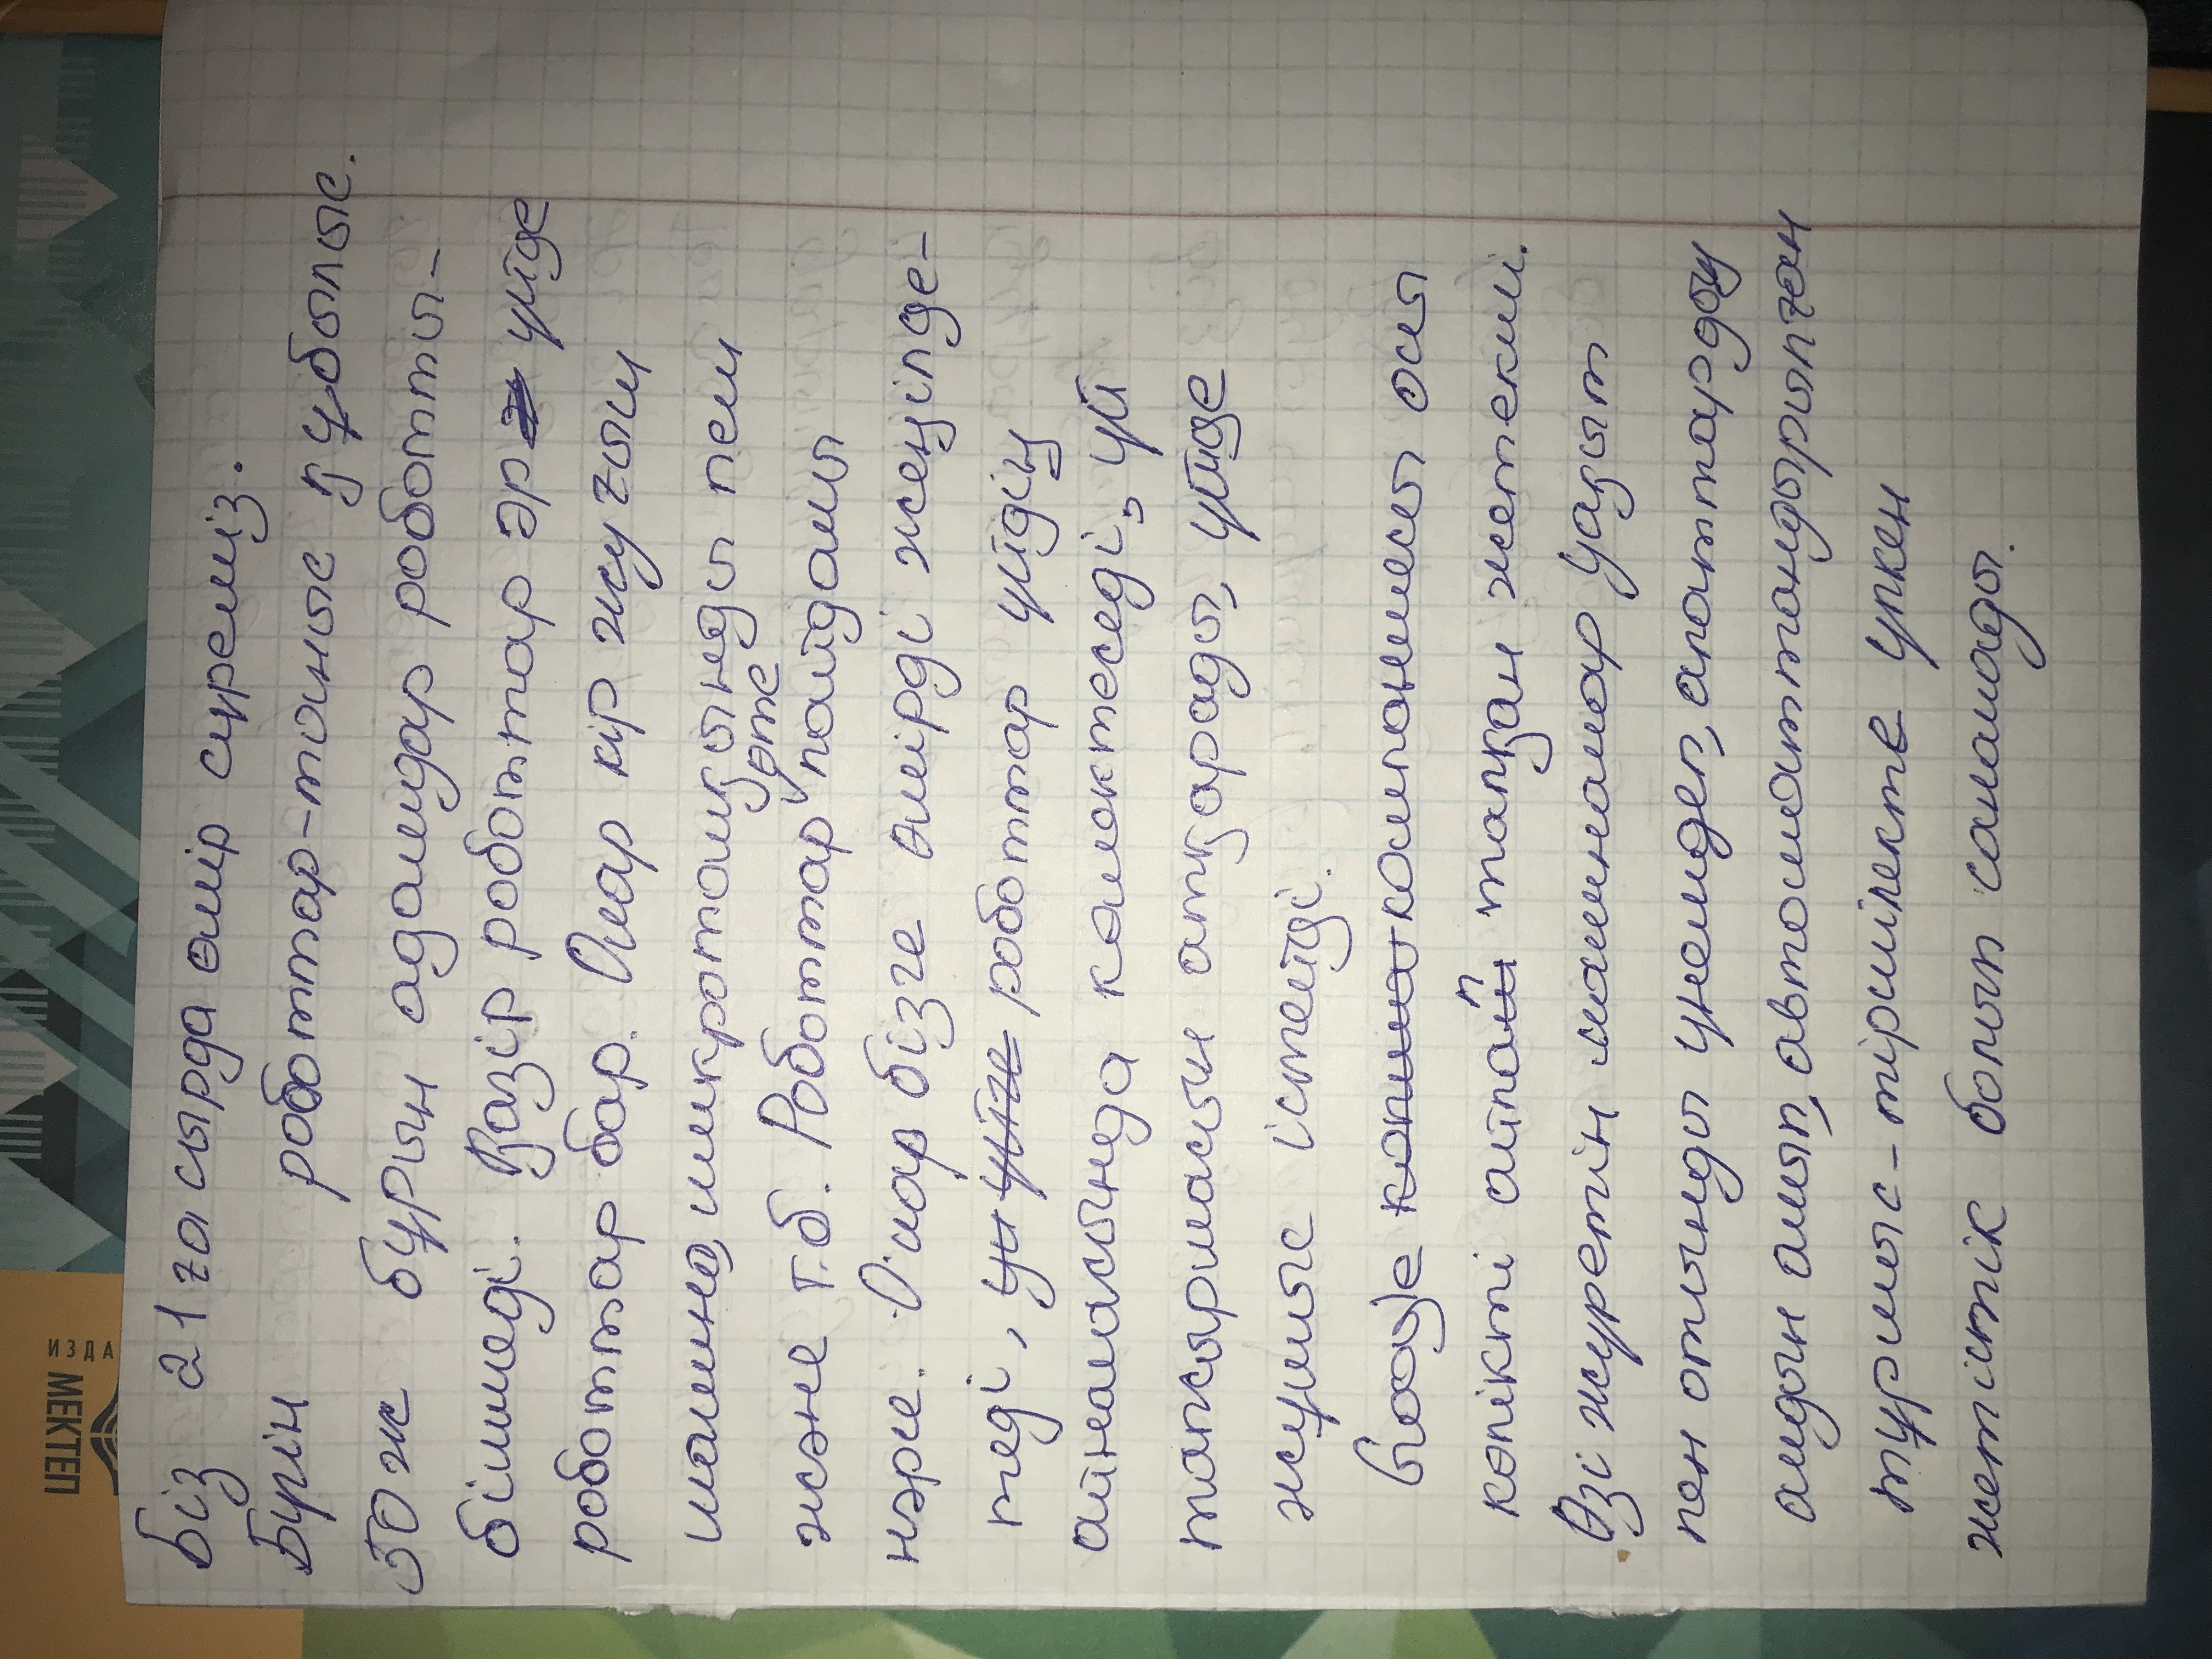 Біз 21 ғасырда өмір сүреміз.
Бүгін роботтар-таныс құбылыс.
50 ж бұрын адамдар роботты-
білмеді. Қазір роботтар әр үйде
роботтар бар. Олар кір жуғыш
машина, микротолқынды пеш
және т.б. Роботтар өте пайдалы
нәрсе. Олар бізге өмірді жеңілде-
теді, үй роботтар үйдің
айналасында көмектеседі, үй
тапсырмасын атқарады, үйде
жұмыс істейді.
Google компаниясы осы
көлікті ойлап тапқан жетекші.
Өзі жүретін машиналар уақыт
пен отынды үнемдеп, апаттардың
алдын алып, автоматтандырылған
тұрмыс-тіршілікте үлкен
жетістік болып саналады.
МЕКТЕП